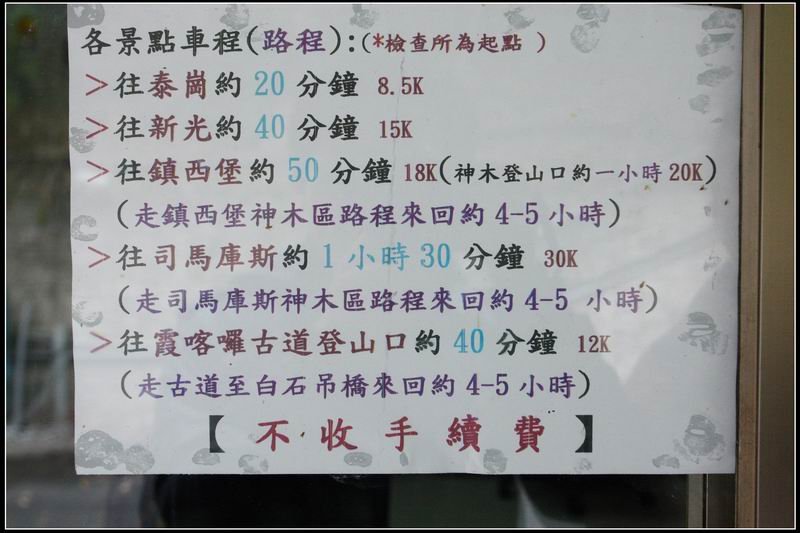 各景點車程(路程):(*檢查所為起點 )
>往泰崗約 20 分鐘 8.5K
>往新光約 40 分鐘 15K
>往鎮西堡約 50 分鐘 18K(神木登山口約一小時 20K)
(走鎮西堡神木區路程來回約 4-5 小時)
>往司馬庫斯約 1 小時 30 分鐘 30K
(走司馬庫斯神木區路程來回約 4-5 小時)
>往霞喀囉古道登山口約 40 分鐘 12K
(走古道至白石吊橋來回約 4-5 小時)
【 不 收 手 續 費 】